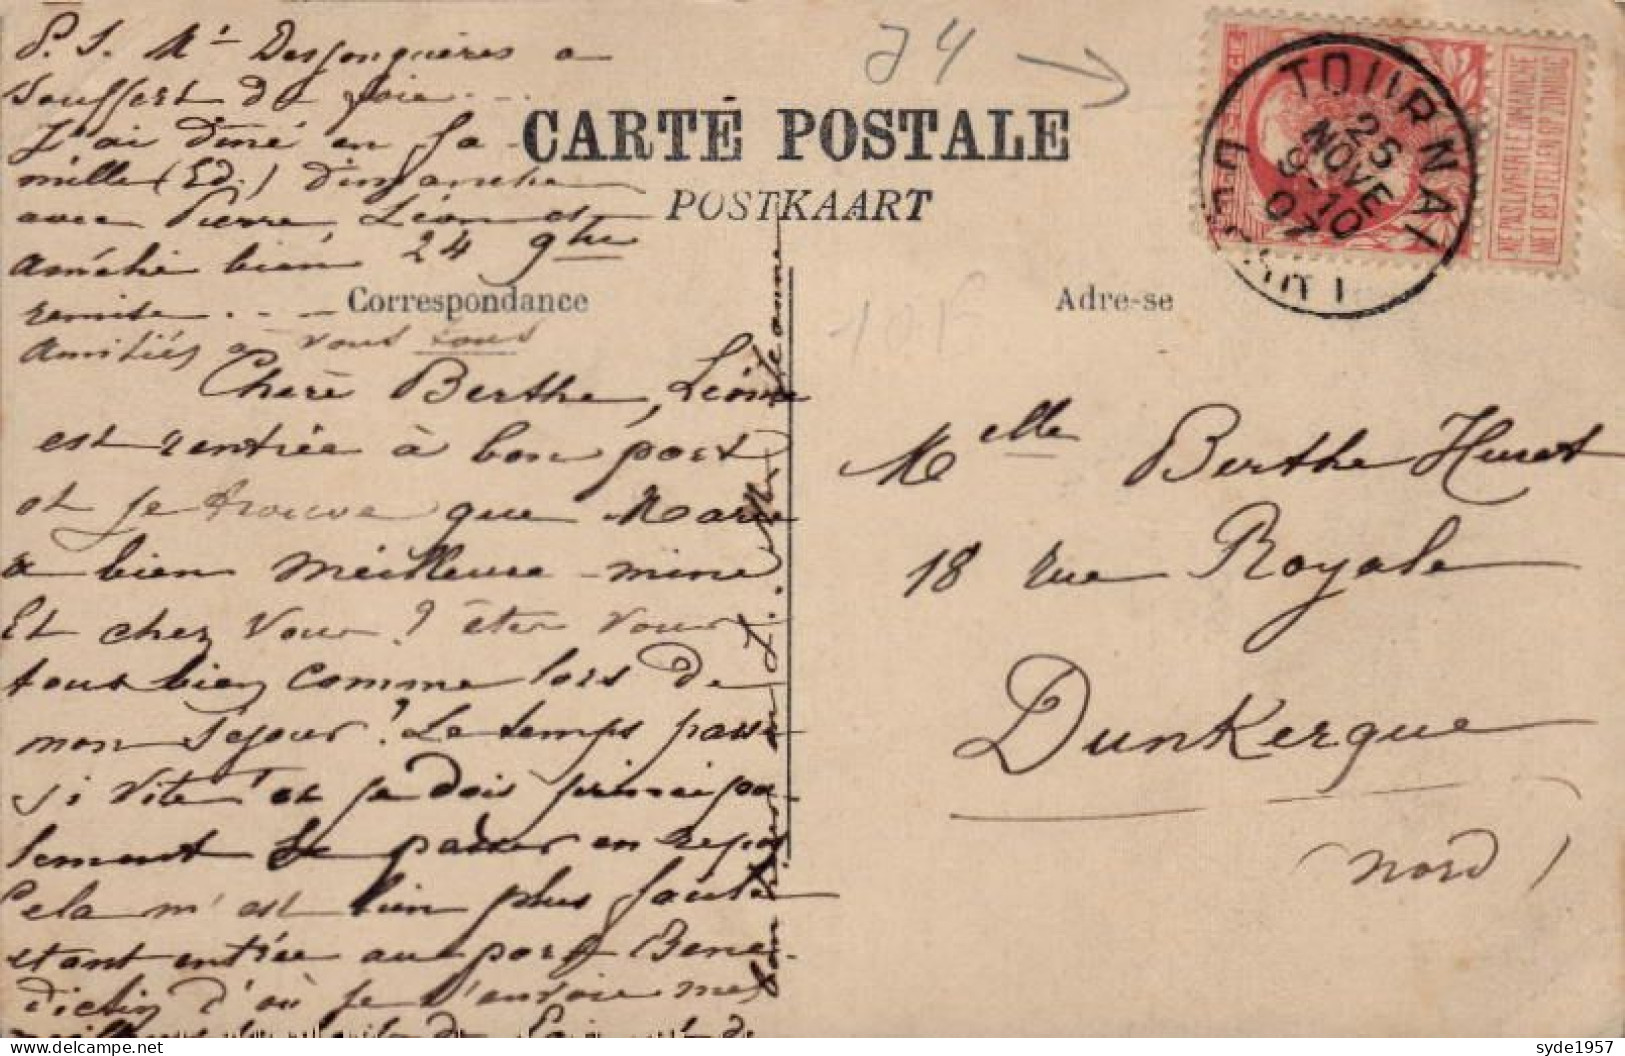 P. S. Mr Desjonquières a
souffert du foie ...
J'ai dîné en fa-
mille (Ed.) Dimanche
avec Pierre, Léon et
Amélie bien 24 gbre
remise . . -
Amitiés à vous tous
CARTE POSTALE
POSTKAART
Correspondance
Adresse
74
10F
TOURNAI
25
NOVE
9-10
07
NE PAS LIVRER LE DIMANCHE
NIET BESTELLEN OP ZONDAG
Chère Berthe, Léonie
est rentrée à bon port
et je trouve que Marie
a bien meilleure mine
Et chez vous? êtes vous
tous bien comme lors de
mon séjour? Le temps passe
si vite et je dois principa-
lement le passer en repos
Cela m'est bien plus facile
étant entrée au port Bene-
dictin d'où je t'envoie mes
Jeanne
Melle Berthe Huret
18 rue Royale
Dunkerque
(Nord)
syde1957